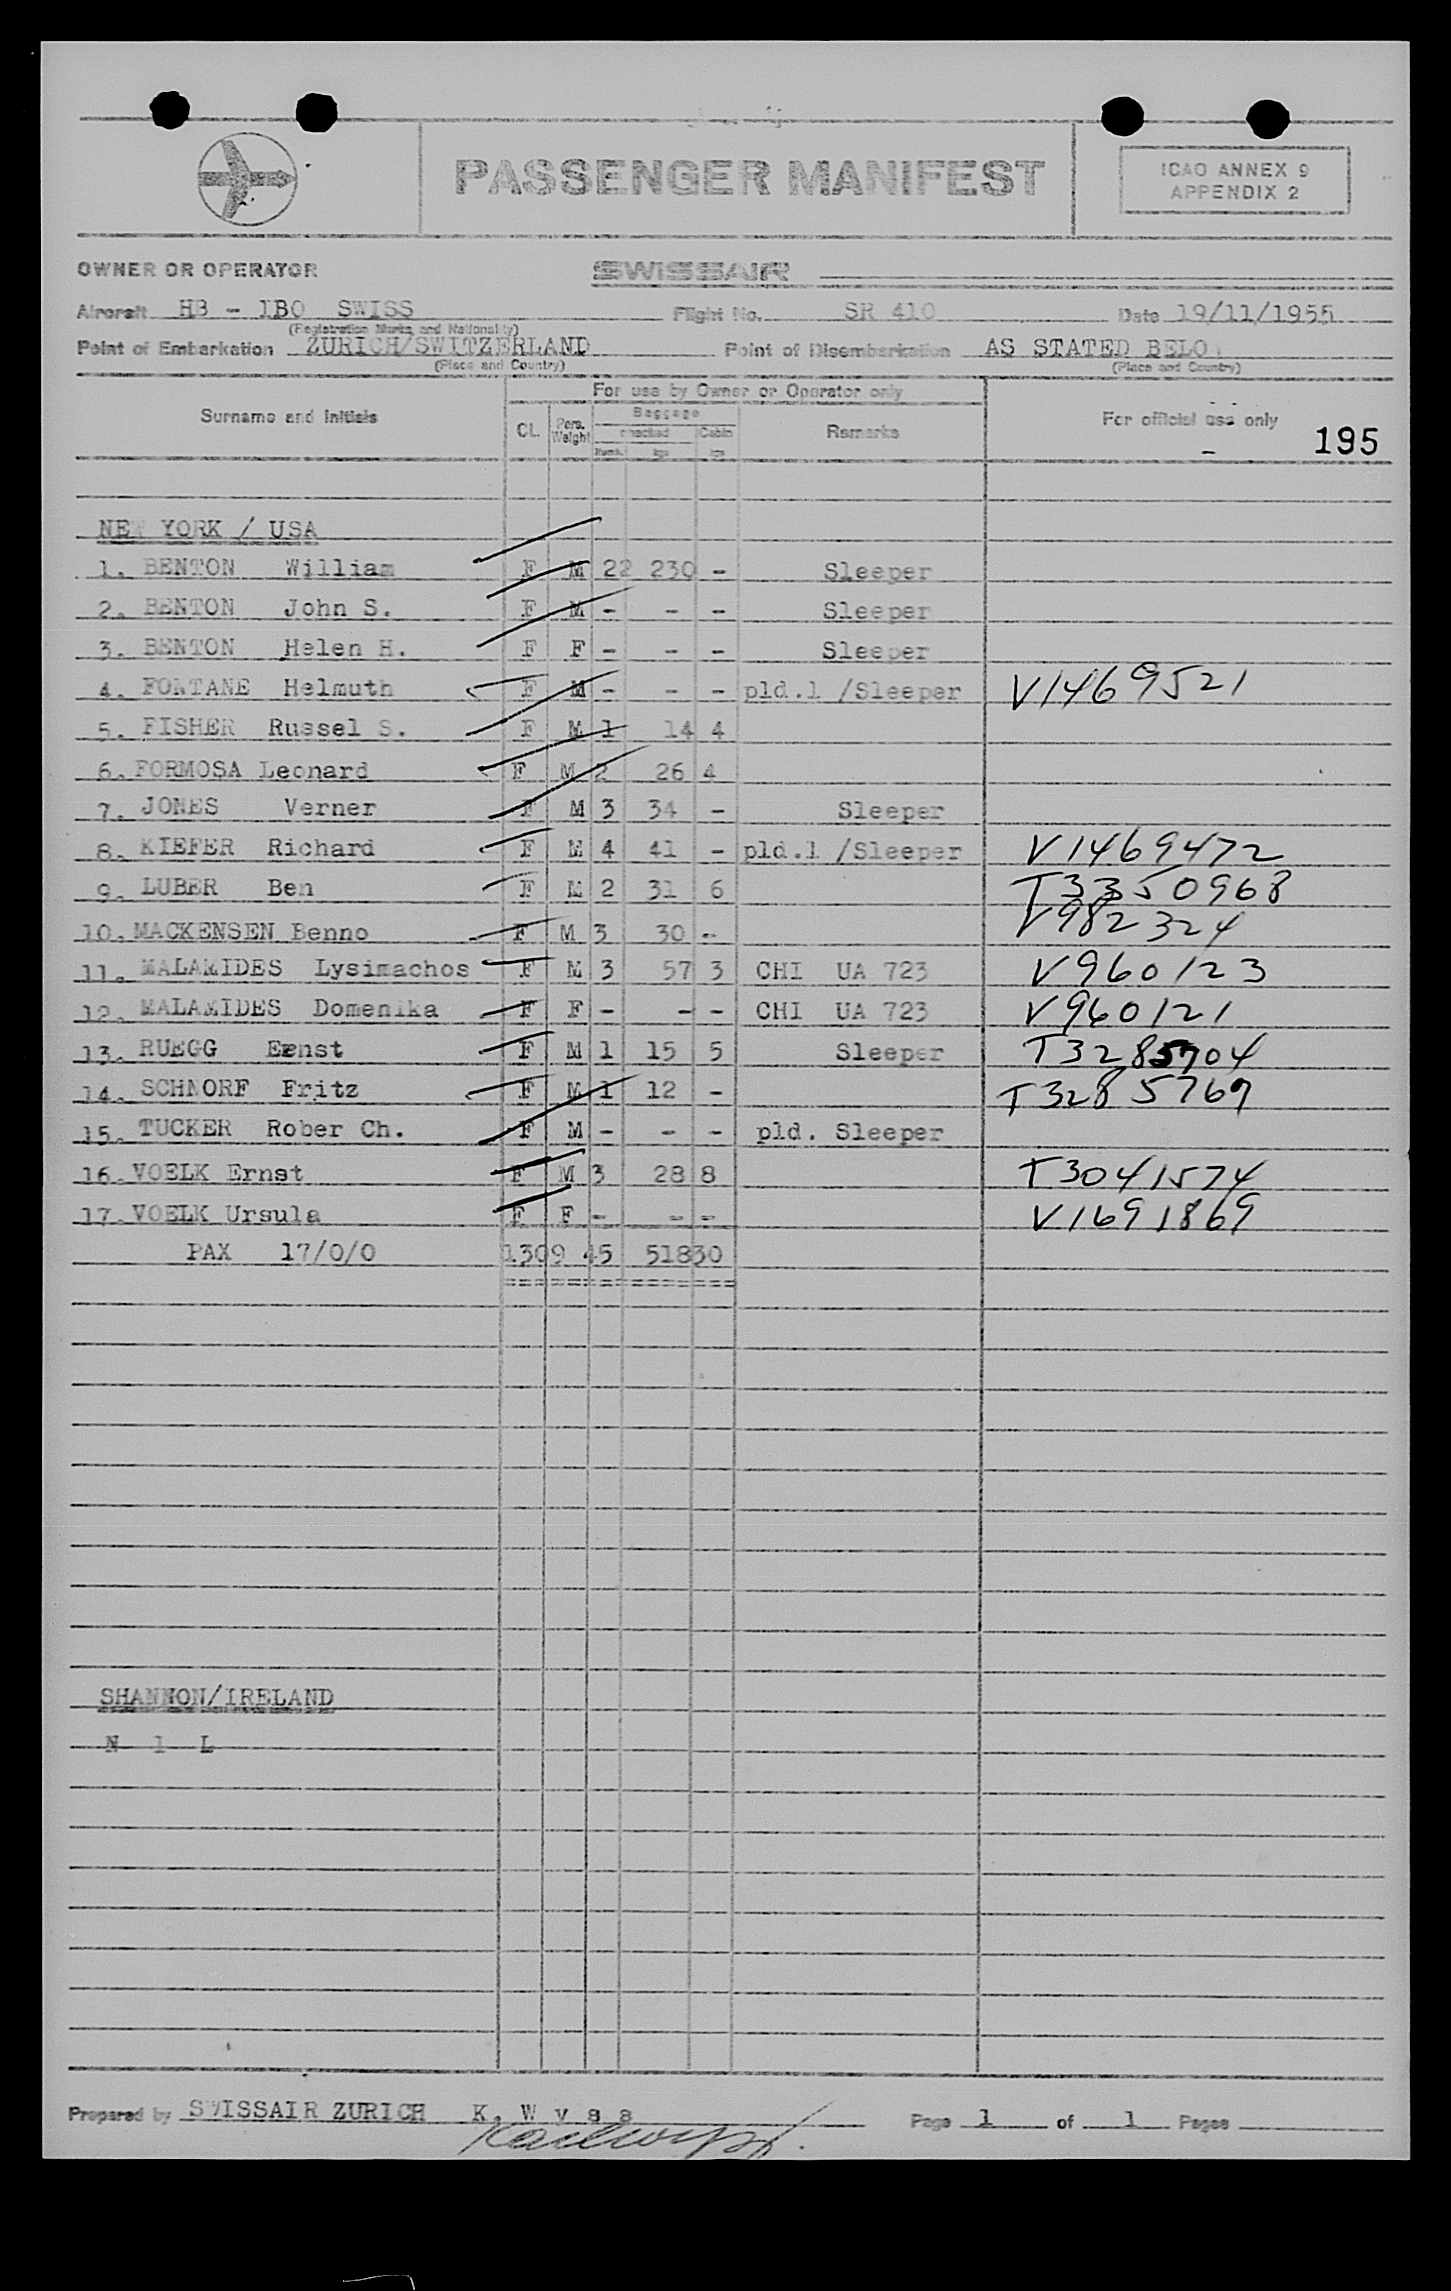 PASSENGER MANIFEST
ICAO ANNEX 9
APPENDIX 2
OWNER OR OPERATOR SWISSAIR
Aircraft HB - IBO SWISS Flight No. SR 410 Date 19/11/1955
(Registration Marks and Nationality)
Point of Embarkation ZURICH/SWITZERLAND Point of Disembarkation AS STATED BELOW
(Place and Country) (Place and Country)
For use by Owner or Operator only
Surname and Initials CL. Pers. Weight Baggage checked Cabin Remarks For official use only
Numb. kgs kgs
195
NEW YORK / USA
1. BENTON William F M 22 230 - Sleeper
2. BENTON John S. F M - - - Sleeper
3. BENTON Helen H. F F - - - Sleeper
4. FONTANE Helmuth F M - - - pld.l /Sleeper V1469521
5. FISHER Russel S. F M 1 14 4
6. FORMOSA Leonard F M 2 26 4
7. JONES Verner F M 3 34 - Sleeper
8. KIEFER Richard F M 4 41 - pld.l /Sleeper V1469472
9. LUBER Ben F M 2 31 6 T3350968
10. MACKENSEN Benno F M 3 30 -- V982324
11. MALAMIDES Lysimachos F M 3 57 3 CHI UA 723 V960123
12. MALAMIDES Domenika F F - - - CHI UA 723 V960121
13. RUEGG Ernst F M 1 15 5 Sleeper T3285704
14. SCHNORF Fritz F M 1 12 - T3285769
15. TUCKER Rober Ch. F M - - - pld. Sleeper
16. VOELK Ernst F M 3 28 8 T3041574
17. VOELK Ursula F F - - - V1691869
PAX 17/0/0 1309 45 518 30
SHANNON/IRELAND
N i L
Prepared by SWISSAIR ZURICH K. W y s s Page 1 of 1 Pages